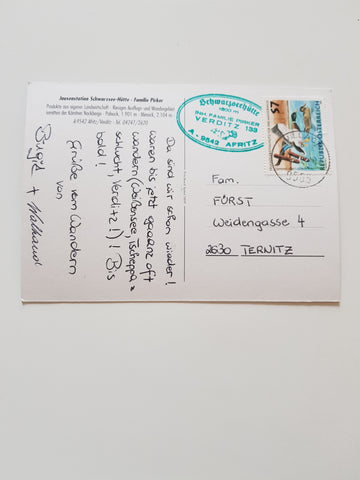 Jausenstation Schwarzsee-Hütte - Familie Pirker
Produkte aus eigener Landwirtschaft - Riesiges Ausflugs- und Wandergebiet
inmitten der Kärntner Nockberge - Palnock, 1.901 m - Mirnock, 2.104 m
A-9542 Afritz/Verditz - Tel. 04247/2670
Schwarzseehütte
1800 m
Bes. FAMILIE PIRKER
VERDITZ 133
A - 9542 AFRITZ
S7
REPUBLIK ÖSTERREICH
Da sind wir schon wieder!
Waren bis jetzt gaaanz oft
wandern (Weißensee, Tscheppa =
schlucht, Verditz!)! Bis
bald!
Grüße vom Wandern
von
Birgit + Waltraud
Fam.
FÜRST
Weidengasse 4
2630 TERNITZ